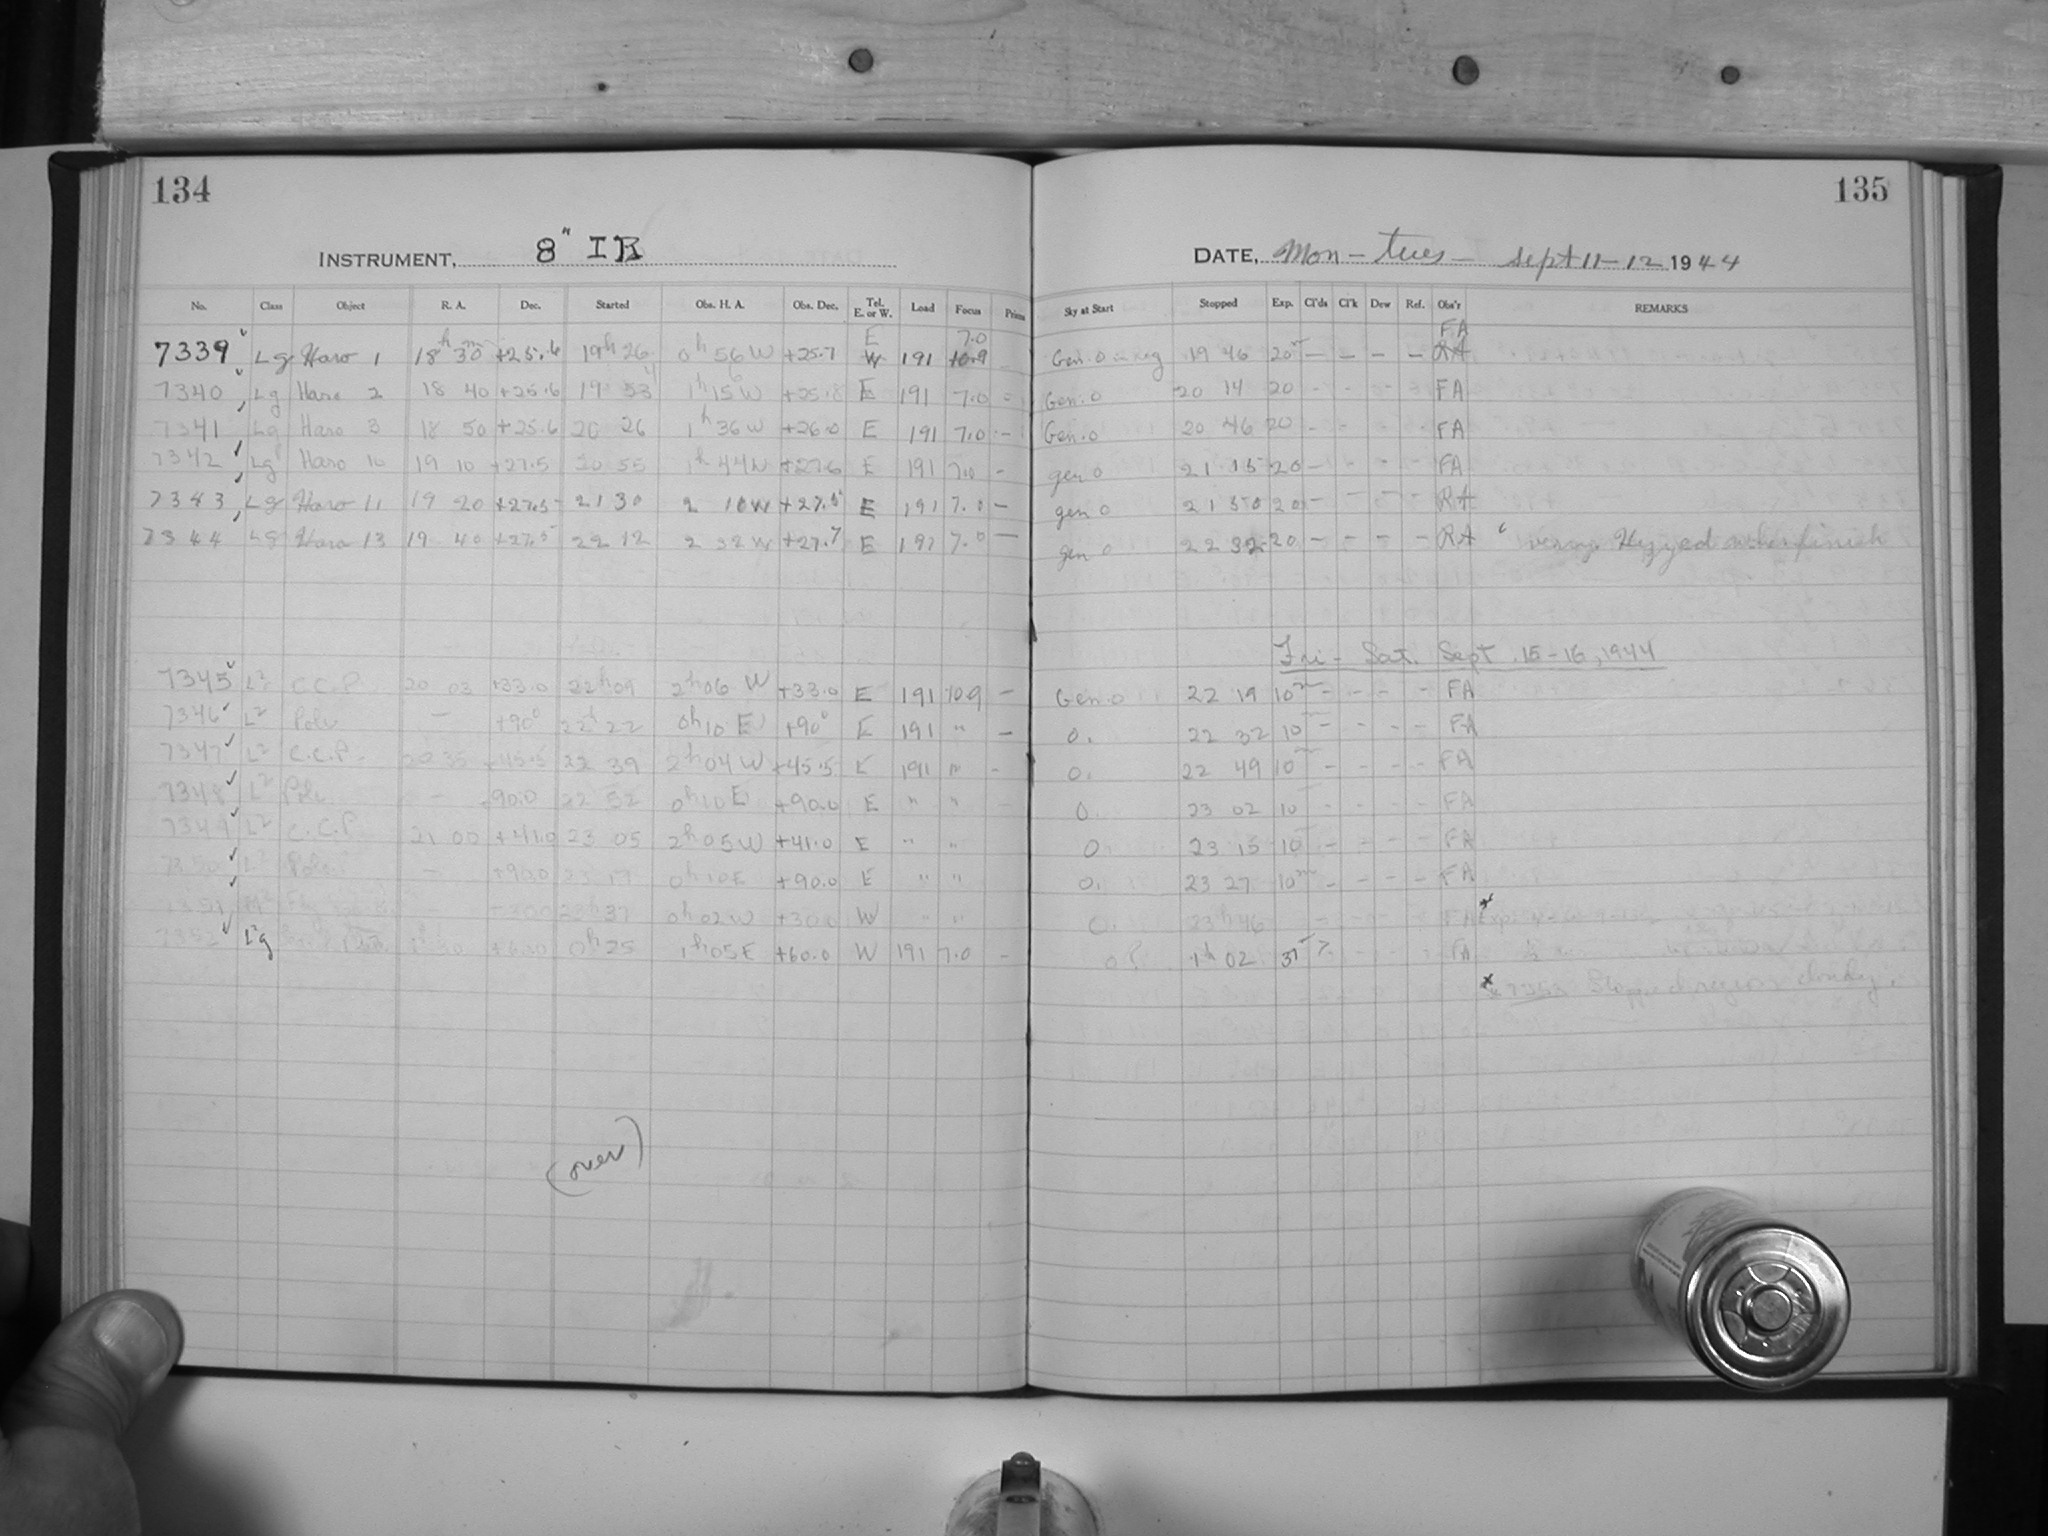 134
135
INSTRUMENT, 8" IR
DATE, Mon - Tues - Sept 11-12 1944
No. Class Object R. A. Dec. Started Obs. H. A. Obs. Dec. Tel. E. or W. Load Focus Prism Sky at Start Stopped Exp. Cl'ds Cl'k Dew Ref. Obs'r REMARKS
E 7.0 FA
7339 Lg Haro 1 18h 30m +25.6 19h 26 0h 56 W +25.7 W 191 10.9 Gen. 0 19 46 20m - - - - RA
7340 Lg Haro 2 18 40 +25.6 19 53 1h 15 W +25.8 E 191 7.0 - Gen. 0 20 14 20 - - - - FA
7341 Lg Haro 3 18 50 +25.6 20 26 1h 36 W +26.0 E 191 7.0 - Gen. 0 20 46 20 - - - - FA
7342 Lg Haro 10 19 10 +27.5 20 55 1h 44 W +27.6 E 191 7.0 - gen 0 21 15 20 - - - - FA
7343 Lg Haro 11 19 20 +27.5 21 30 2 10 W +27.5 E 191 7.0 - gen 0 21 50 20 - - - - RA
7344 Lg Haro 13 19 40 +27.5 22 12 2 32 W +27.7 E 191 7.0 - gen 0 22 32 20 - - - - RA very finish
Fri - Sat. Sept. 15-16, 1944
7345 L2 C.C.P. 20 03 +33.0 22h 09 2h 06 W +33.0 E 191 10.9 - Gen. 0 22 19 10m - - - - FA
7346 L2 Pole - +90° 22h 22 0h 10 E +90° E 191 " - 0. 22 32 10 - - - - FA
7347 L2 C.C.P. 20 35 +45.5 22 39 2h 04 W +45.5 E 191 " - 0. 22 49 10m - - - - FA
7348 L2 Pole - +90.0 22 52 0h 10 E +90.0 E " " - 0. 23 02 10 - - - - FA
7349 L2 C.C.P. 21 00 +41.0 23 05 2h 05 W +41.0 E " " 0. 23 15 10 - - - - FA
7350 L2 Pole - +90.0 23 17 0h 10 E +90.0 E " " 0. 23 27 10m - - - - FA
7351 - 23h 37 0h 02 W W " " 0. 23h 46 - - - - FA
7352 L2g +60.0 0h 25 1h 05 E +60.0 W 191 7.0 - 0? 1h 02 37 - - - FA
* Stopped region cloudy.
(over)